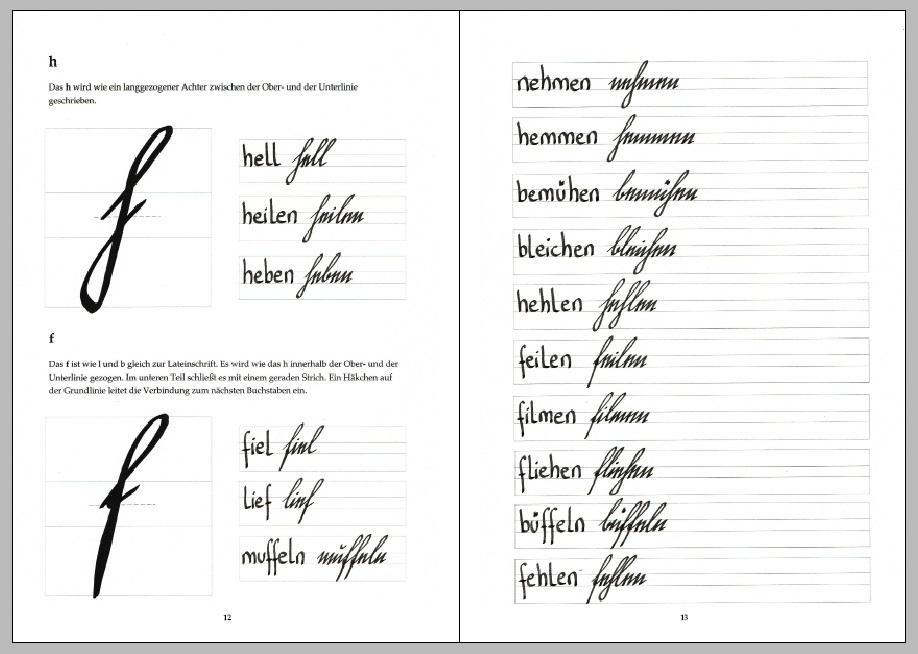 h
Das h wird wie ein langgezogener Achter zwischen der Ober- und der Unterlinie
geschrieben.
hell hell
heilen heilen
heben heben
f
Das f ist wie l und b gleich zur Lateinschrift. Es wird wie das h innerhalb der Ober- und der
Unterlinie gezogen. Im unteren Teil schließt es mit einem geraden Strich. Ein Häkchen auf
der Grundlinie leitet die Verbindung zum nächsten Buchstaben ein.
fiel fiel
lief lief
muffeln muffeln
12
nehmen nehmen
hemmen hemmen
bemühen bemühen
bleichen bleichen
hehlen hehlen
feilen feilen
filmen filmen
fliehen fliehen
büffeln büffeln
fehlen fehlen
13